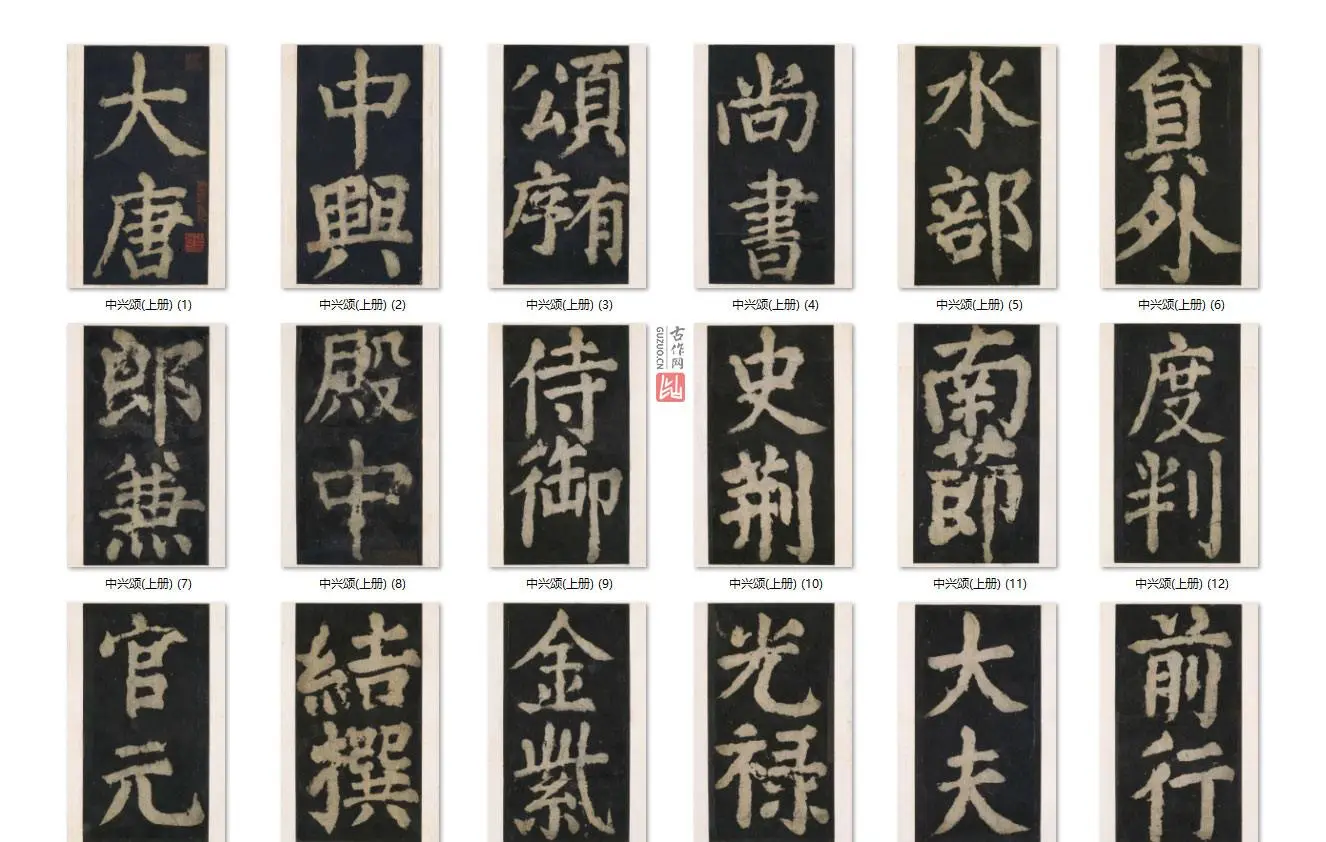 大唐
中兴颂(上册) (1)
中興
中兴颂(上册) (2)
頌有序
中兴颂(上册) (3)
尚書
中兴颂(上册) (4)
水部
中兴颂(上册) (5)
貟外
中兴颂(上册) (6)
郎兼
中兴颂(上册) (7)
殿中
中兴颂(上册) (8)
侍御
中兴颂(上册) (9)
古作网
GUZUO.CN
史荆
中兴颂(上册) (10)
南莭
中兴颂(上册) (11)
度判
中兴颂(上册) (12)
官元
結撰
金紫
光禄
大夫
前行